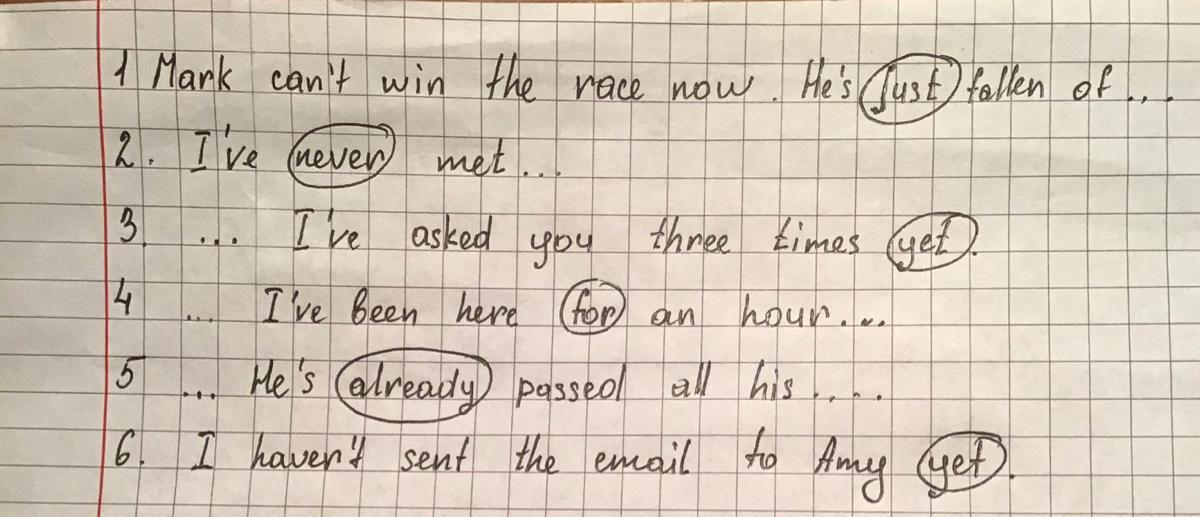 1 Mark can't win the race now. He's just fallen of...
2. I've never met...
3. ... I've asked you three times yet.
4 ... I've been here for an hour...
5 ... He's already passed all his ....
6. I haven't sent the email to Amy yet.